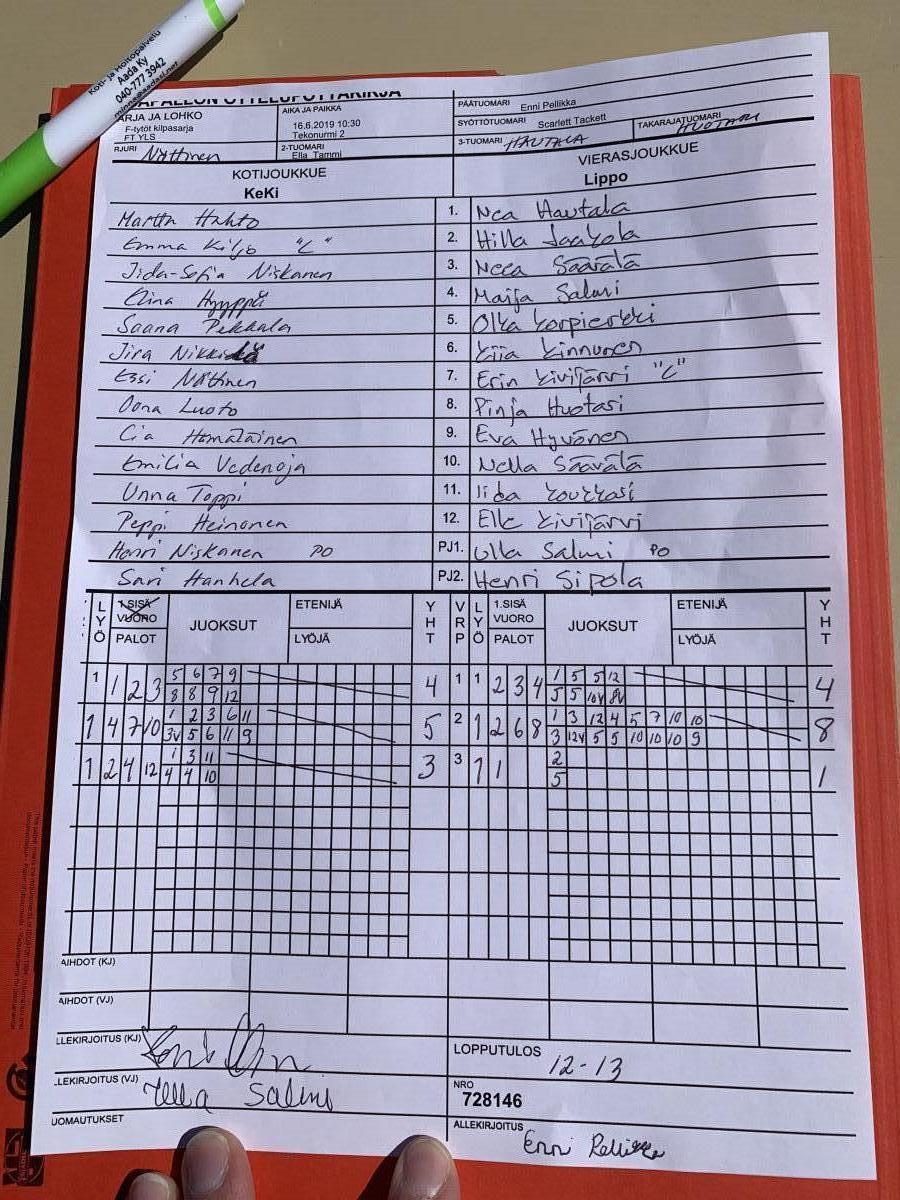 Koti- ja Hoitopalvelu
Aada Ky
040-777 3942
APALLON OTTELUPÖYTÄKIRJA
ARJA JA LOHKO
F-tytöt kilpasarja
FT YLS
AIKA JA PAIKKA
16.6.2019 10:30
Tekonurmi 2
PÄÄTUOMARI Enni Pellikka
SYÖTTÖTUOMARI Scarlett Tackett
RJURI Nättinen
2-TUOMARI
Ella Tammi
3-TUOMARI HAUTALA
TAKARAJATUOMARI HUOTARI
KOTIJOUKKUE
KeKi
VIERASJOUKKUE
Lippo
Martta Hahto 1. Nea Hautala
Emma Kiljo "C" 2. Hilla Jaakola
Iida-Sofia Niskanen 3. Neea Säärälä
Elina Hyyppä 4. Maija Salmi
Saana Pekkala 5. Olka Korpierkki
Jira Nikkilä 6. Kiia Kinnunen
Essi Nättinen 7. Erin Kivijärvi "C"
Oona Luoto 8. Pinja Huotari
Cia Hämäläinen 9. Eva Hyvönen
Emilia Vedenoja 10. Nella Säävälä
Unna Toppi 11. Iida Koukkari
Peppi Heinonen 12. Elle Kivijärvi
Henri Niskanen PO PJ1. Ulla Salmi PO
Sari Hanhela PJ2. Henri Sipola
LYÖ 1.SISÄ VUORO PALOT JUOKSUT ETENIJÄ LYÖJÄ YHT VRP LYÖ 1.SISÄ VUORO PALOT JUOKSUT ETENIJÄ LYÖJÄ YHT
1 1 2 3 5 6 7 9 4 1 1 2 3 4 1 5 5 12 4
8 8 9 12 5 5 10V 8V
1 4 7 10 1 2 3 6 11 5 2 1 2 6 8 1 3 12 4 5 7 10 10 8
3V 5 6 11 9 3 12V 5 5 10 10 10 9
1 2 4 12 1 3 11 3 3 1 1 2 1
4 4 10 5
AIHDOT (KJ)
AIHDOT (VJ)
LLEKIRJOITUS (KJ)
LOPPUTULOS 12-13
LEKIRJOITUS (VJ) Ulla Salmi
NRO
728146
UOMAUTUKSET
ALLEKIRJOITUS Enni Pellikka